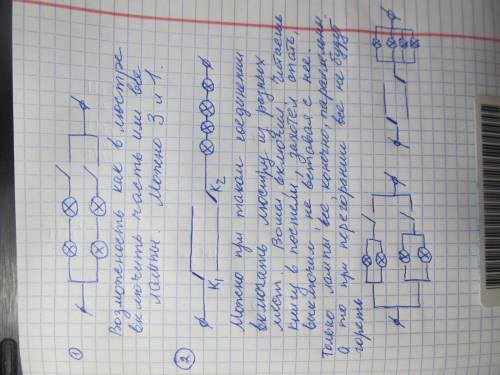 ①
Возможность как в люстре
включить часть или все
лампы. Можно 3 и 1.
②
К₁
К₂
Можно при таком соединении
включать люстру из разных
мест. Вошел, включил. Читаешь
книгу в постели, захотел спать,
выключил не вставая с нее.
Только лампы все, конечно, параллельны.
А то при перегорании все не будут
гореть